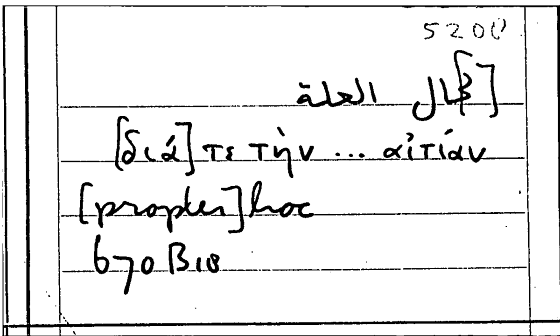 5200
العلة
[διά] τε τὴν ... αἰτίαν
[propter] hoc
670 B18